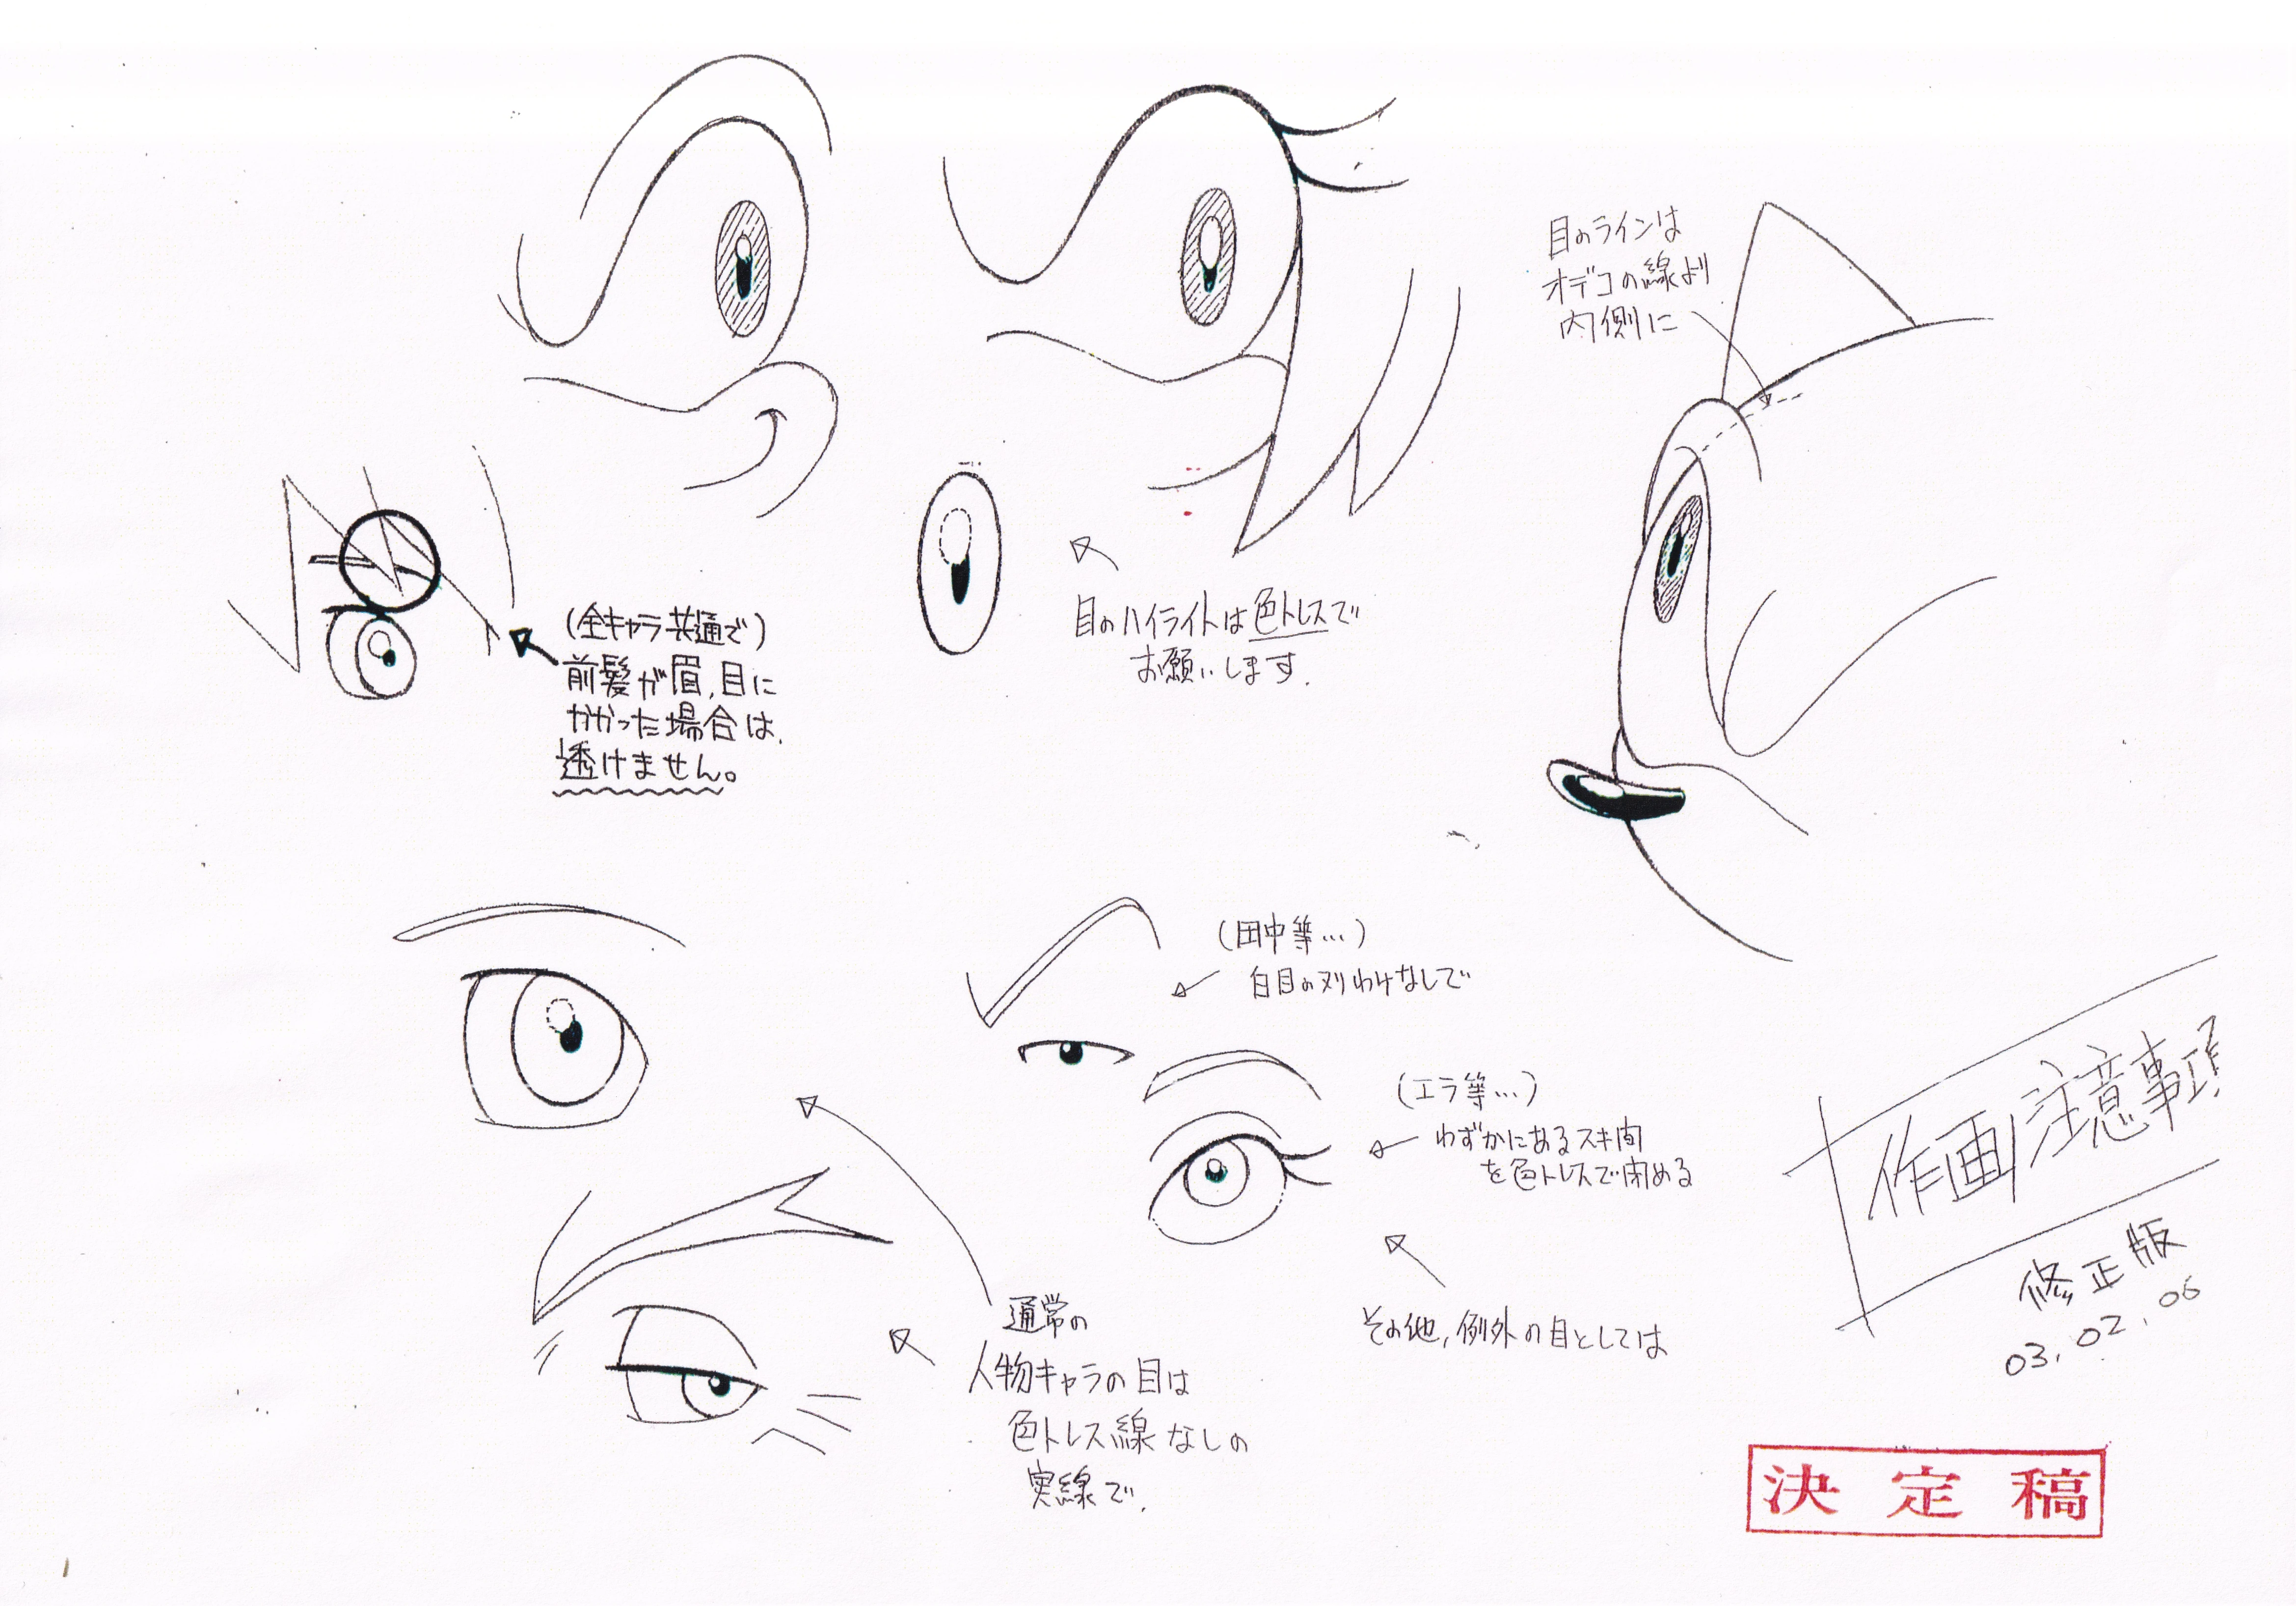 目のラインは
オデコの線より
内側に
(全キャラ共通で)
前髪が眉、目に
かかった場合は、
透けません。
目のハイライトは色トレスで
お願いします。
(田中等…)
白目のヌリわけなしで
(エラ等…)
わずかにあるスキ間
を色トレスで閉める
その他、例外の目としては
通常の
人物キャラの目は
色トレス線なしの
実線で、
作画注意事項
修正版
03.02.06
決定稿